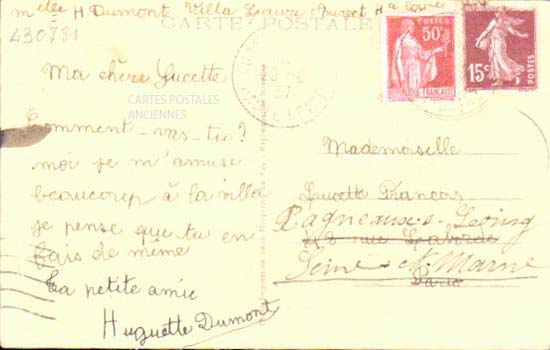 Mlle H Dumont Villa Laura
CARTE POSTALE
430781
Ma chère Lucette
CARTES POSTALES
ANCIENNES
Comment-vas-tu?
moi je m'amuse
beaucoup à la villa
je pense que tu en
fais de même
Ta petite amie
Huguette Dumont
50c
POSTES
REPUBLIQUE FRANÇAISE
15c
POSTES
Mademoiselle
Lucette François
rue Laborde
Seine et Marne
Paris